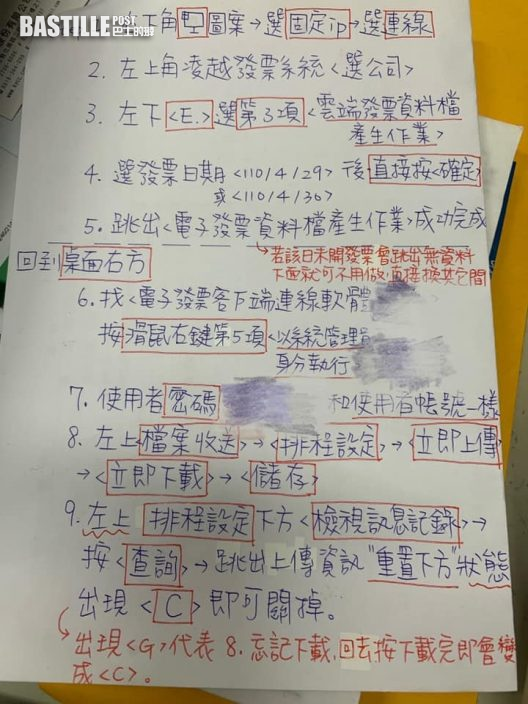 BASTILLE POST
巴士的報
左下角 圖案→選固定ip→選連線
2. 左上角凌越發票系統<選公司>
3. 左下<E.>選第3項<雲端發票資料檔
產生作業>
4. 選發票日期<110/4/29>後直接按<確定>
或<110/4/30>
5. 跳出<電子發票資料檔產生作業>成功完成
若該日未開發票會跳出無資料
下面就可不用做,直接換其它間
回到桌面右方
6. 找<電子發票客戶端連線軟體
按滑鼠右鍵第5項<以系統管理員
身分執行
7. 使用者密碼 和使用者帳號一樣
8. 左上檔案收送>→<排程設定>→<立即上傳
→<立即下載>→<儲存>
9. 左上 排程設定下方<檢視訊息記錄>→
按<查詢>→跳出上傳資訊"重置下方"狀態
出現<C>即可關掉。
出現<G>代表 8. 忘記下載,回去按下載完即會變
成<C>。